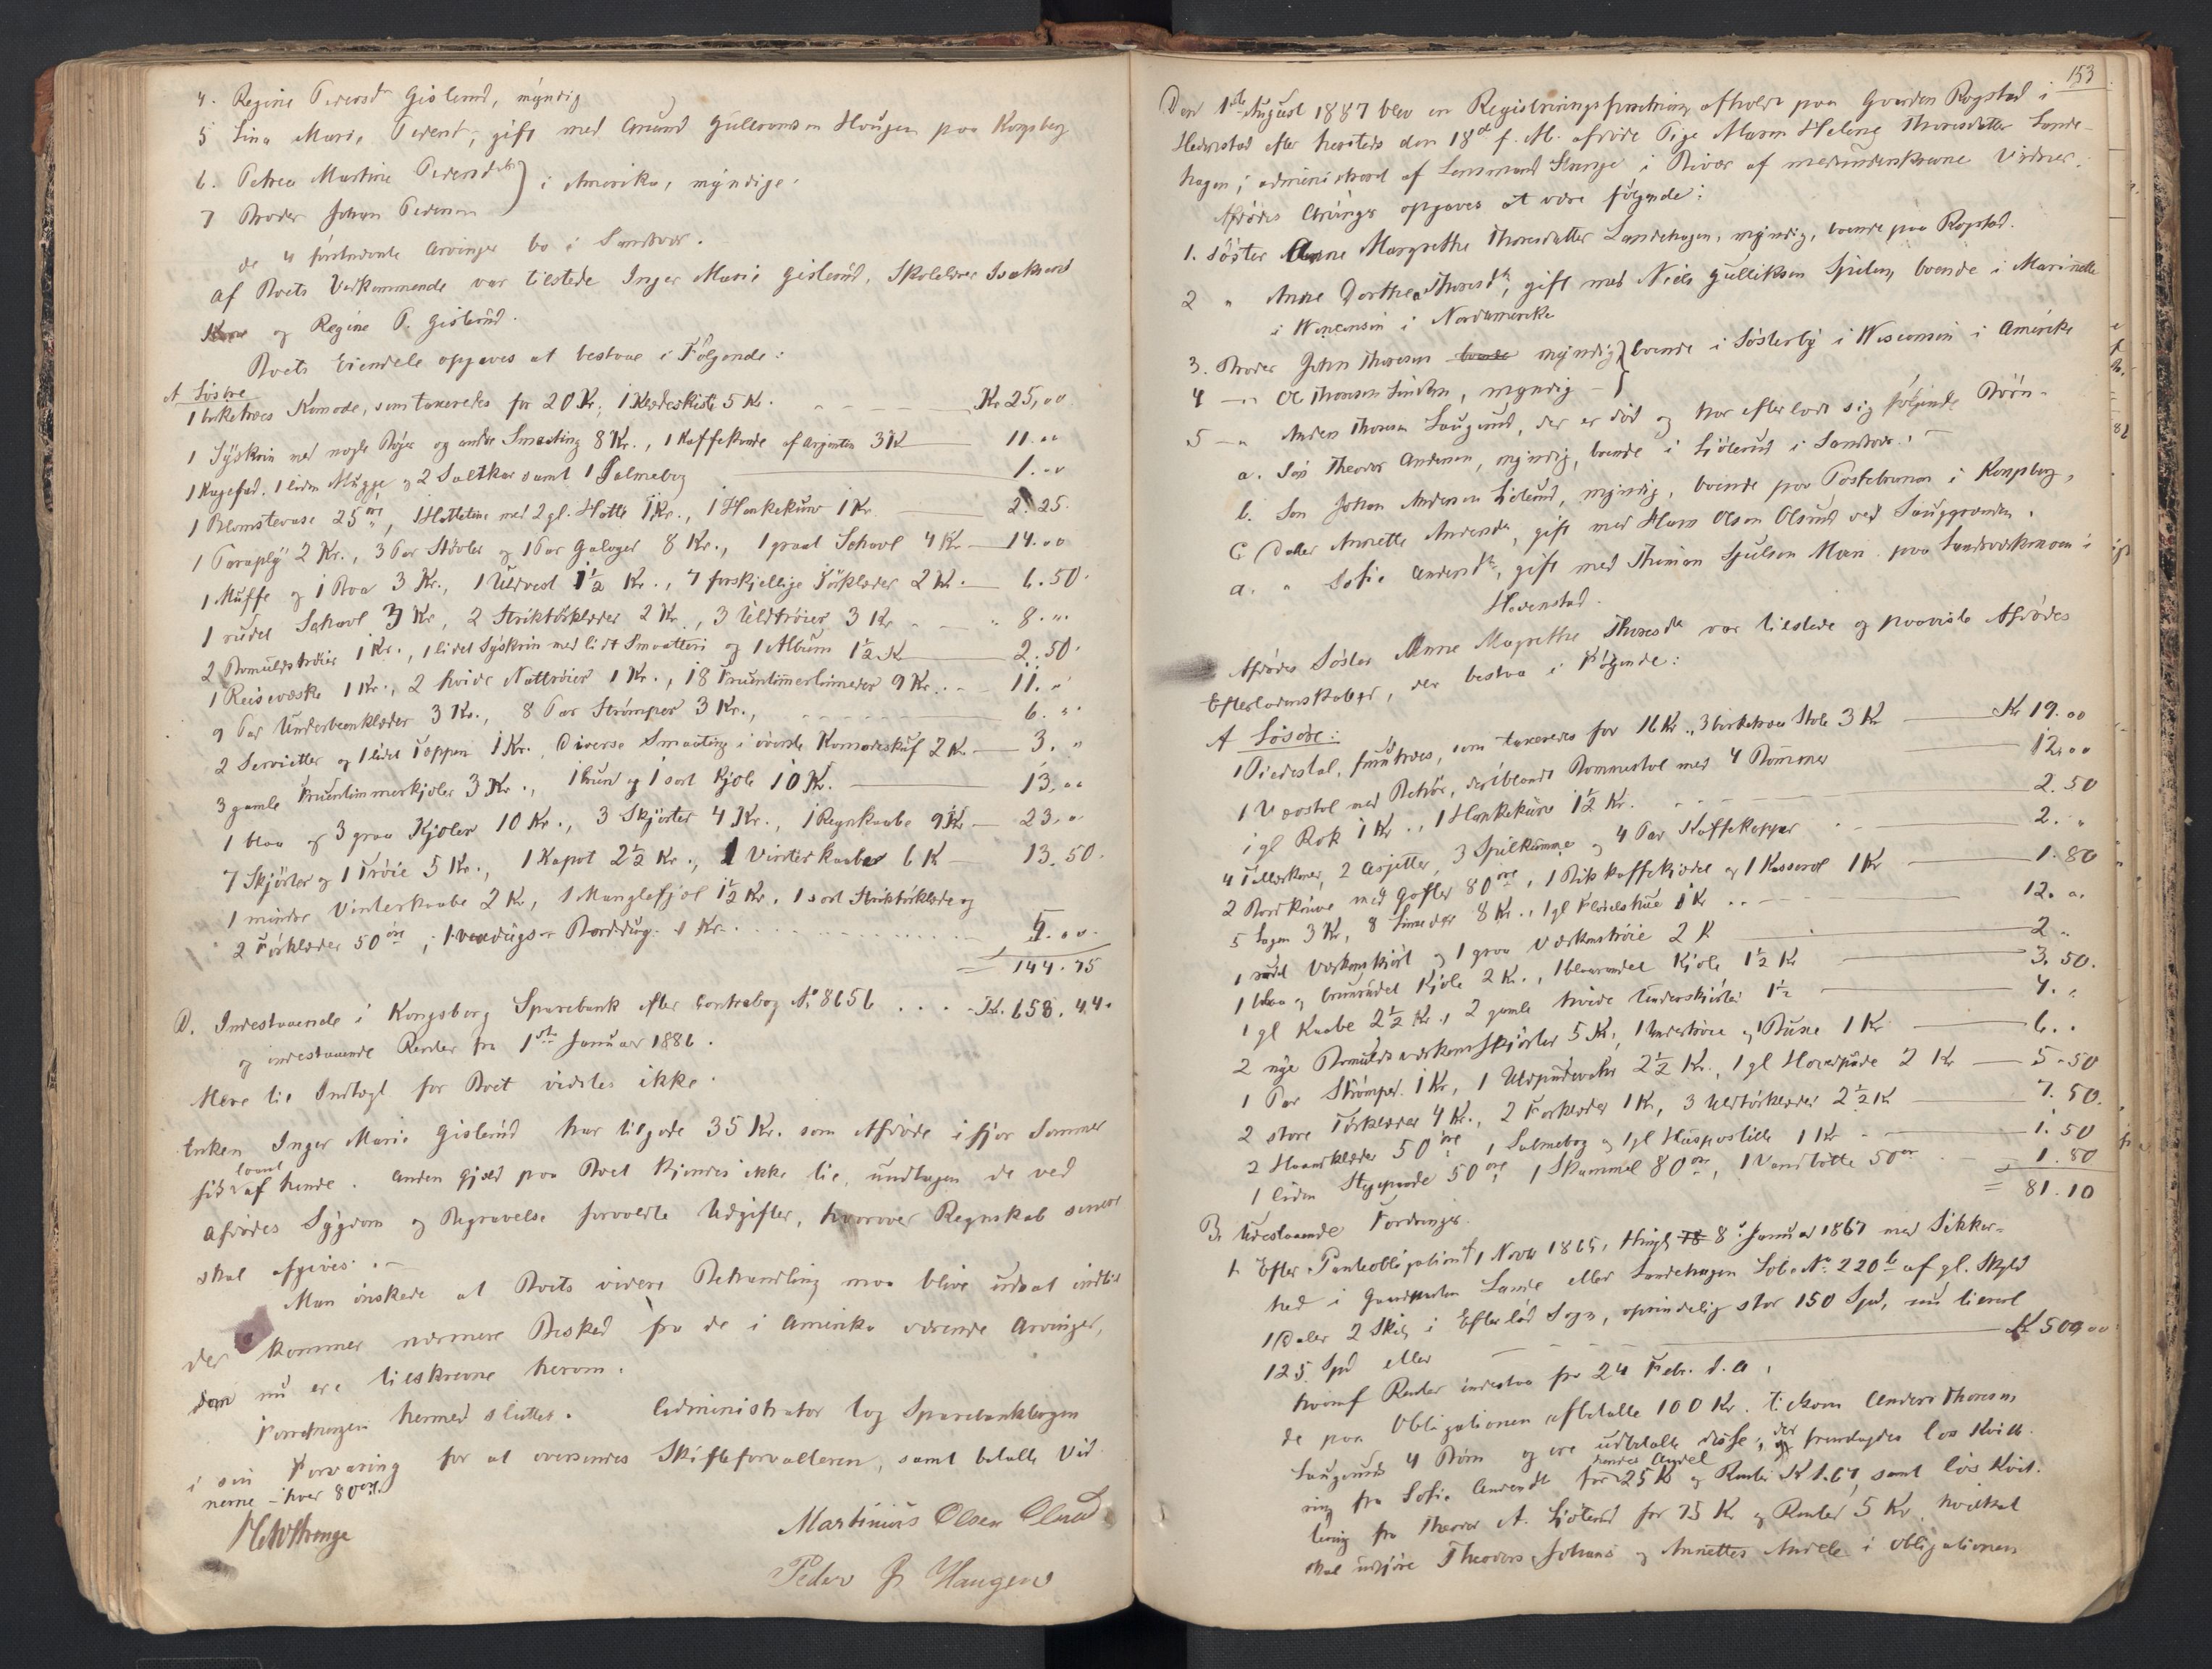 4. Regine Pedersd Gislerud, myndig
5 Lina Marie Pedersd, gift med Amund Gullovendsen Hougen paa Kongsberg
6. Petrea Martine Pedersdtr } i Amerika, myndige.
7 Broder Johan Pedersen
de 4 førstnevnte Arvinger bo i Sandsvær.
Af Boets Vedkommende var tilstede Inger Marie Gislerud, Skolelærer
og Regine P. Gislerud.
Boets Eiendele opgaves at bestaa i Følgende:
A Løsøre
1 birketræes Komode, som taxeredes for 20 Kr., 1 Klædeskiste 5 Kr. Kr. 25,00
1 Syskrin med nogle Bøger og andre Smaating 8 Kr., 1 Kaffekande af Argentan 3 K 11.00
1 Kagefad. 1 liden Mugge og 2 Saltkar samt 1 Salmebog 1.00
1 Blomstervase 25 øre, 1 Hatteteine med 2 gl. Hatte 1 Kr., 1 Hankekurv 1 Kr 2.25.
1 Paraply 2 Kr., 3 Par Støvler og 1 Par Galoger 8 Kr., 1 graat Schavl 4 Kr 14.00
1 Muffe og 1 Boa 3 Kr., 1 Uldvest 1½ Kr., 7 forskjellige Tørklæder 2 Kr. 6.50.
1 rudet Schavl 3 Kr, 2 Striktørklæder 2 Kr., 3 Uldtrøier 3 Kr 8."
2 Bomuldstrøier 1 Kr., 1 lidet Syskrin med lidt Smaatteri og 1 Album 1½ K 2.50.
1 Reisevæske 1 Kr., 2 hvide Nattrøier 1 Kr., 18 Fruentimmerlinneder 9 Kr. 11."
9 Par Underbenklæder 3 Kr., 8 Par Strømper 3 Kr., 6."
2 Servietter og 1 lidet Teppen 1 Kr. Diverse Smaating i øverste Komodeskuf 2 K. 3."
3 gamle Fruentimmerkjoler 3 Kr., 1 brun og 1 sort Kjole 10 Kr. 13.00
1 blaa og 3 graa Kjoler 10 Kr., 3 Skjørter 4 Kr., 1 Regnkaabe 9 Kr 23."
7 Skjørter og 1 Trøie 5 Kr., 1 Kapot 2½ Kr., 1 Vinterkaabe 6 K 13.50.
1 mindre Vinterkaabe 2 Kr, 1 Manglefjøl 1½ Kr. 1 sort Striktørklæde og
2 Forklæder 50 øre, 1 Borddug 1 Kr. 5.00.
= 144.75
B. Indestaaende i Kongsberg Sparebank efter Contrabog No 8656 . . . Kr. 658.44.
og indestaaende Renter fra 1ste Januar 1886.
Mere til Indtægt for Boet vidstes ikke.
Enken Inger Marie Gislerud har tilgode 35 Kr. som Afdøde ifjor Sommer
fik laant af hende. Anden Gjæld paa Boet kjendes ikke til, undtagen de ved
Afdødes Sygdom og Begravelse forvoldte Udgifter, hvorover Regnskab senere
skal afgives.
Man ønskede at Boets videre Behandling maa blive udsat indtil
der kommer nærmere Besked fra de i Amerika værende Arvinger,
som nu ere tilskrevne herom.
Forretningen hermed sluttet. Administrator tog Sparebankbogen
i sin Forvaring for at oversendes Skifteforvalteren, samt betalte Vid
nerne hver 80 øre.
Martinius Olsen Olsrud
Peder Hansen

153
Den 1ste August 1887 blev en Registreringsforretning afholdt paa Gaarden Rogstad i
Hedenstad efter hersteds den 18de f. M. afdøde Pige Maren Helene Thoresdatter Lande-
hagen; administreret af Lensmand Strenge i Bivær af medundenskrevne Vidner.
Afdødes Arvinger opgaves at være følgende:
1. Søster Anne Margrethe Thoresdatter Landehagen, myndig, boende paa Rogstad.
2 " Anne Dorthea Thoresdtr, gift med Niels Gulliksen boende i Marinette
i Wisconsin i Nordamerika
3. Broder John Thoresen boende myndig } boende i Søsterby i Wisconsin i Amerika
4 —"— Ole Thoresen Linden, myndig
5 —"— Anders Thoresen Laugerud, der er død og har efterladt sig følgende Børn.
a. Søn Theodor Andersen, myndig, boende i Ljøterud i Sandsvær.
b. Søn Johan Andersen Ljøterud, myndig, boende paa i Kongsberg,
c. Datter Annette Andersdtr, gift med Hans Olsen Olsrud ved Laugegrenden.
a. " Sofie Andersdtr, gift med Moen paa Landsværkmoen i
Hedenstad.
Afdødes Søster Anne Magrethe Thoresdtr var tilstede og paaviste Afdødes
Efterladenskaber, der bestaa i Følgende:
A Løsøre:
1 Piedestal, furutræes, som taxeredes for 16 Kr., 3 birketræes Stole 3 Kr Kr 19.00
1 Vævstol med Behør, deriblandt Bommestol med 4 Bommer 12,00
1 gl Rok 1 Kr., 1 Hankekurv 1½ Kr. 2.50
4 Tallerkener, 2 Asjetter, 3 Spilkumme og 4 Par Kaffekopper 2."
2 Bordknive med Gafler 80 øre, 1 Blikkaffekjedel og 1 Kasserol 1 Kr 1.80
5 Lagen 3 Kr, 8 Linneder 8 Kr., 1 gl Fløielshue 1 Kr 12.00
1 rødt Værkenskjørt og 1 graa Værkenstrøie 2 K 2."
1 blaa og brunrudet Kjole 2 Kr., 1 blaarudet Kjole 1½ Kr 3.50.
1 gl Kaabe 2½ Kr., 2 gamle hvide Underskjørter 1½ 4."
2 nye Bomulds værkensskjørter 5 Kr, 1 Undertrøie og 1 Buxe 1 Kr 6."
1 Par Strømper 1 Kr, 1 Uldpudevahr 2½ Kr., 1 gl Hovedpude 2 Kr 5.50
2 store Tørklæder 4 Kr., 2 Forklæder 1 Kr, 3 Uldtørklæder 2½ K 7.50.
2 Haandklæder 50 øre, 1 Salmebog og 1 gl Huspostille 1 Kr 1.50
1 liden Stegepande 50 øre, 1 Skammel 80 øre, 1 Vandbøtte 50 øre 1.80
= 81.10
B. Udestaaende Fordringer.
1. Efter Panteobligation af 1 Novbr 1865, thingl. 18 8de Januar 1867 med Sikker-
hed i Gaardparten Lande eller Landehagen Løbe No 220b af gl. Skyld
1 Daler 2 Skill i Efterlød Sogn, oprindelig stor 150 Spd, nu tilrest
125 Spd eller Kr 500,00
hvoraf Renter indestaa fra 24 Febr. d. A.
de paa Obligationen afbetalte 100 Kr. tilkom Anders Thoresens
Laugeruds 4 Børn og ere udbetalte disse, der fremlagdes løs Kvitte-
ring fra Sofie Andersdtr for hendes Andel 25 Kr og Renter Kr 1.67, samt løs Kvit-
tering fra Theodor A. Ljøterud for 75 Kr og Renter 5 Kr, hvilket
skal udgjøre Theodors, Johans og Annettes Andele i Obligationen